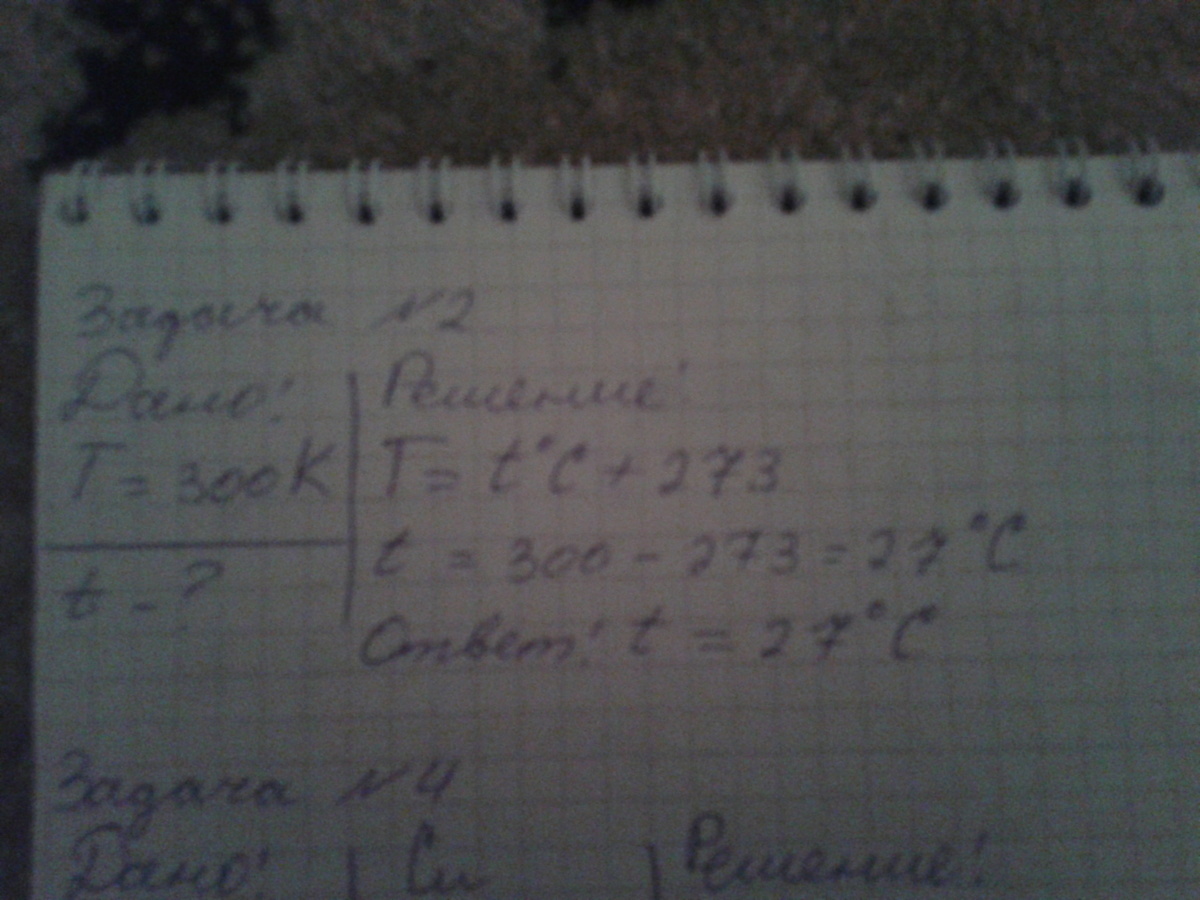 Задача №2
Дано: Решение:
T = 300K T = t°C + 273
t - ? t = 300 - 273 = 27°C
Ответ: t = 27°C
Задача №4
Дано: Си Решение: